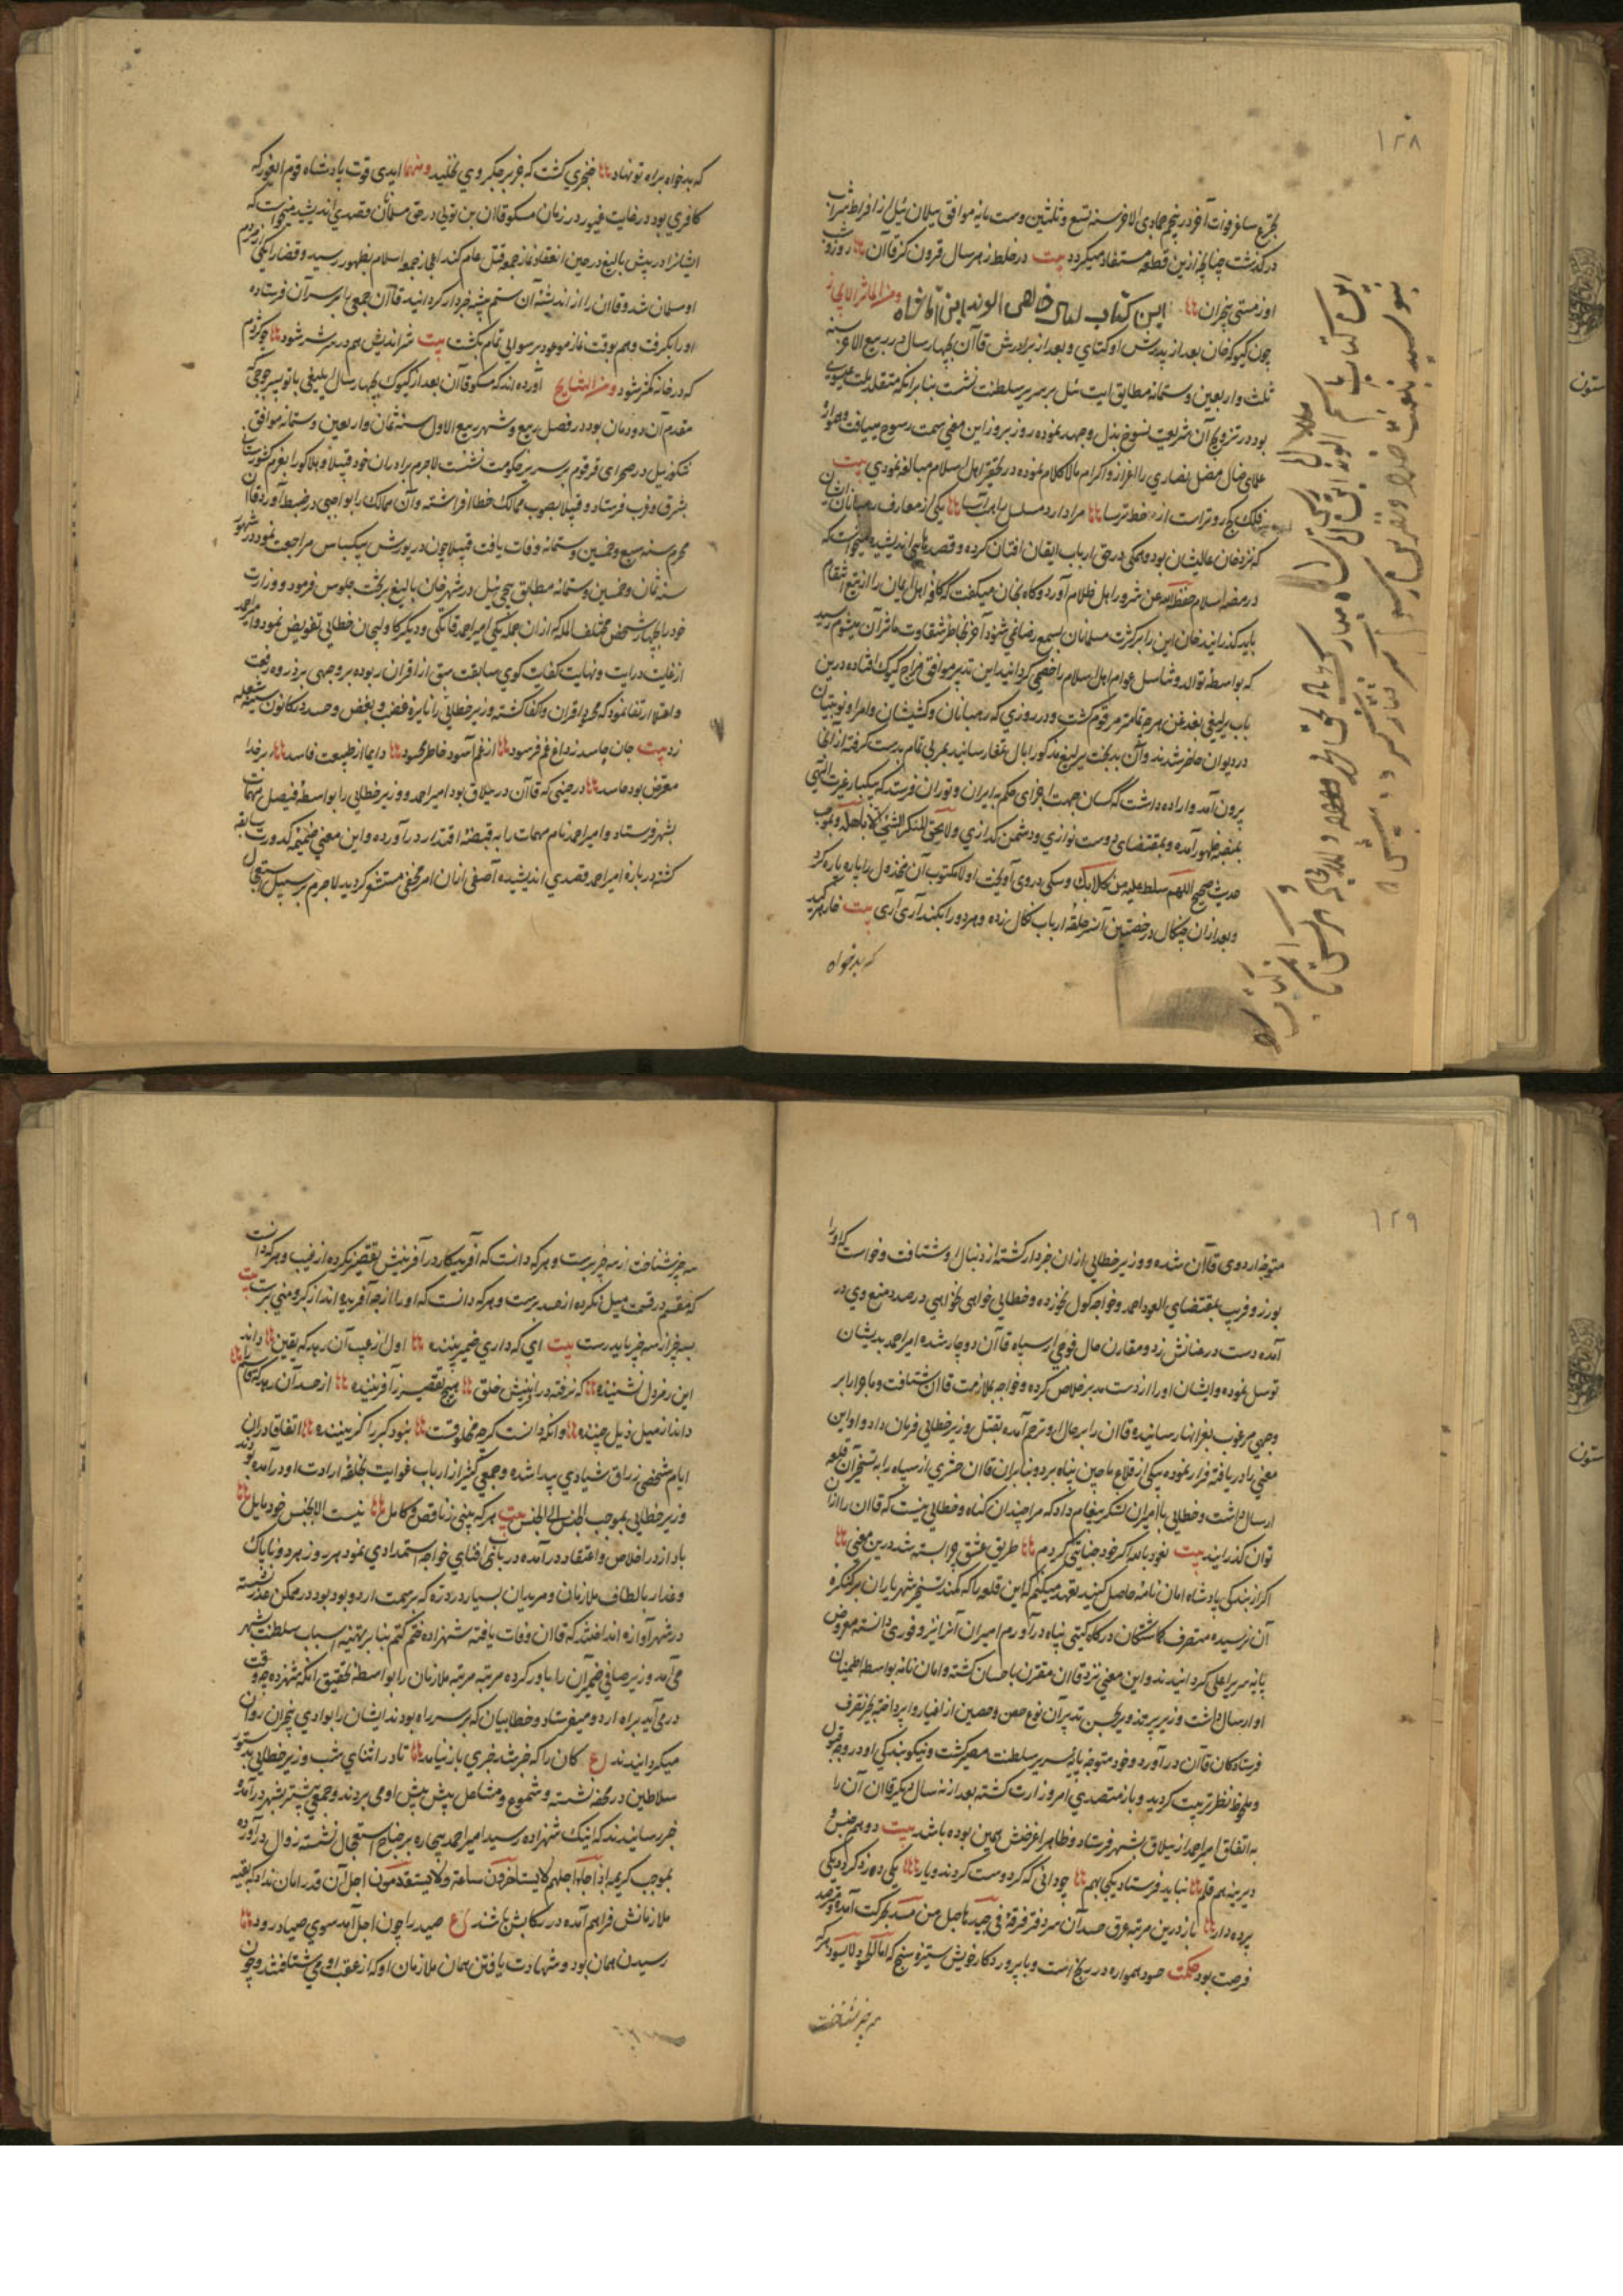 ۱۲۸
بتجرع ساغر فوات آخر در پنجم جمادی الاخر سنه تسع و ثلثین و ست مایه موافق سیلان ئیل از افراط شراب
در گذشت چنانچه ازین قطعه مستفاد میگردد بیت در خلط نه هر سال فزون کز قاآن روز و شب
او ز مستی خبران این کتاب خاصه الوند
چون کیوک خان بعد از پدرش اوکتای و بعد از برادرش قاآن بچهار سال در ربیع الاخر سنه
ثلث و اربعین و ستمائه مطابق ایت ئیل بر سریر سلطنت نشست بنا برانکه متقلد ملت عیسوی
بود در ترویج آن شریعت منسوخ بذل و جهد نموده روز بروز این معنی سمت رسوخ مییافت و همواره
علمای ضال مضل نصاری را اعزاز و اکرام مالا کلام نموده در تحقیر اهل اسلام مبالغه نمودی بیت
فلک کج رو تر است از خط ترسا مرا دارد مسلسل راهب آسا یکی از معارف رهبانان ایشان
که نزد خان عالیشان بود و همگی در حق ارباب ایقان افتان کرده و قصدهای اندیشیده میخواست که
در بیضه اسلام حفظ الله عن شرور اهل ظلام آورد و کاه بخان میکفت که کافه اهل ایمان را از تیغ انتقام
باید گذرانید خان این را بر کثرت مسلمانان بسمع رضا نمی شنود آخر بخاطر شقاوت ماثر آن میشوم رسید
که بواسطه توالد و تناسل عوام اهل اسلام را خصی گردانید این تدبیر موافق مزاج کیوک افتاده درین
باب یرلیغی بغدغن هرچه تمامتر مرقوم گشت و در روزی که رهبانان و کشیشان و امرا و نوینیان
در دیوان حاضر شدند و آن بدبخت یرلیغ مذکور را بال تمغا رسانید بعربی تمام بدست گرفته از انجا
بیرون آمد و اراده داشت که کسان جهت اجرای حکم به ایران و توران فرستد که بیکبار غیرت الهی
بمنصه ظهور آمده و بمقتضای دوست نوازی و دشمن گدازی و لا یحیق المکر السیئ الا باهله و بموجب
حدیث صحیح اللهم سلط علیه من کلابک و سکی در وی آویخت اولا مکتوب آن مخذول را پاره پاره کرد
و بعد ازان چنگال در خصیتین آن سر حلقه ارباب نکال زده و هر دو را بکند آری آری بیت خار هر کید
که بدخواه
که بدخواه براه تو نهاد خنجری گشت که جز بر جگر وی نخلید و منها ایدی قوت پادشاه قوم ایغور که
کافری بود در غایت غیور در زمان منکوقاآن بن تولی در حق مسلمانان قصدی اندیشید میخواست که
ایشانرا در بیش بالیغ در حین انعقاد نماز جمعه قتل عام کند
او مسلمان شد و قاآن را از اندیشه آن ستم پیشه خبردار گردانید قاآن جمعی بر سر آن فرستاده
او را بگرفت و هم بوقت نماز موعود بر سوایی تمام بکشت بیت شر اندیش هم در سر شر شود چو گژدم
که در خانه کمتر شود و من النتایج آورده اند که منکو قاآن بعد از کیوک بچهار سال ایلیغی باتو پسر جوجی که
مقدم آن دودمان بود در فصل ربیع و شهر ربیع الاول سنه ثمان و اربعین و ستمائه موافق
تنکوز ئیل در صحرای قرقوم بر سریر حکومت نشست لاجرم برادران خود قبیلا و هلاکو را بعزم کشورستان
بشرق و غرب فرستاد و قبیلا بصوب ممالک خطا افراشته و آن ممالک را بواجبی در ضبط آورد قاآن
محرم سنه سبع و خمسین و ستمائه وفات یافت قبیلا چون در یورش بیکساس مراجعت نمود در شهور
سنه ثمان و خمسین و ستمائه مطابق پیچی ئیل در شهر خان بالیغ بر تخت جلوس فرمود و وزارت
خود را بچهار شخص مختلف الملله که ازان جمله یکی امیر احمد فناکتی و دیگر کاوبیجان خطایی تفویض نمود و امیر احمد
از غایت درایت و نهایت کفایت گوی مسابقت سبق از اقران ربوده بر وجهی بر ذروه رفعت
و اعتلا ارتقا نمود که محسود اقران و اکفا گشته وزیر خطایی را نایره غضب و بغض و حسد در کانون سینه شعله
زد بیت جان حاسد ز داغ غم فرسود از غم آسود خاطر محسود دایما از طبیعت فاسد بر خدا
معترض بود حاسد در حینی که قاآن در ییلاق بود امیر احمد و وزیر خطایی را بواسطه فیصل مهمات
بشهر فرستاد و امیر احمد تمام مهمات را به قبضه اقتدار در آورده و این معنی ضمیمه کدورت سابقه
گشته در باره امیر احمد قصدی اندیشیده آصفی ازان امر مخفی مستشعر گردید لاجرم بر سبیل استعجال
۱۲۹
متوجه اردوی قاآن شده و وزیر خطایی ازان خبردار گشته از دنبال او شتافت و خواست که او را
بزور و فریب بمقتضای العود احمد و خواجه گول نخورده و خطایی خواهی نخواهی در صدد منع وی در
آمده دست در عنانش زد و مقارن حال فوجی از سپاه قاآن دوچار شده امیر احمد بدیشان
توسل نموده و ایشان او را از دست مدبر خلاص کرده و خواجه بملازمت قاآن شتافت و ماجرا را بر
وجهی مرغوب بعز انها رسانیده قاآن را بر حال او ترحم آمده بقتل وزیر خطایی فرمان داد و او این
معنی را دریافته فرار نموده بیکی از قلاع ماچین پناه برد و بنابران قاآن حشری از سپاه را به تسخیر آن قلعه
ارسال داشت و خطایی با امیران لشکر پیغام داد که مرا چندان گناه و خطایی نیست که قاآن را ازان
توان گذرانید بیت نعوذ بالله اگر خود جنایتی کردم طریق عشق چرا بسته شد درین معنی
اگر از بندگی پادشاه امان نامه حاصل کنید تعهد میکنم که این قلعه را که کمند تسخیر شهریاران بر کنگره
آن نرسیده متصرف گماشتگان درگاه گیتی پناه در آورم امیران آنرا نیز و فوری دانسته معروض
پایه سریر اعلی گردانیدند و این معنی نزد قاآن مقرون باحسان گشته و امان نامه بواسطه اطمینان
او ارسال داشت وزیر پر تزویر بحسن تدبیر آن نوع حصن حصین از اغیار وا پرداخته بحیز تصرف
فرستادگان قاآن در آورد و خود متوجه پایه سریر سلطنت مصیر گشت و نیکو بندگی او در وجه قبول
و ملحوظ نظر تربیت گردید و باز متصدی امر وزارت گشته بعد از نه سال دیگر قاآن آن را
به اتفاق امیر احمد از ییلاق بشهر فرستاد و ظاهرا غرضش همین بوده باشد بیت دو هم جنس و
دیرینه هم قلم نباید فرستاد یکجا بهم چو دانی که گردوست گردند و یار یکی دزد گردد یکی
پرده دار باز درین مرتبه عرق حسد آن سر دفتر فرقه فی جیدها حبل من مسد بحرکت آمده و مترصد
فرصت بود حکمت حسود همواره در رنج است و با پروردگار خویش ستیزه سنج که اما الحسود لا یسود هر که
سه چیز شناخت
سه چیز شناخت از سه چیز برست و هر که دانست که آفریدگار در آفرینش تقصیر نکرده از عیب و هر که دانست
که مقسم در قسمت میل نکرده از حسد برست و هر که دانست که او را از چه آفریده اند از کبر و منی برست بیت
سه چیز از سه چیز باید رست بیت ای که داری ضمیر بیننده اول از عیب آن رهد که یقین داند
این رمز دل نشیننده که نرفته در آفرینش خلق هیچ تقصیر ز آفریننده از حسد آن رهد که قسام را
داند از میل ذیل چیننده و انکه دانست کز چه مخلوقست نبود کبر را گزیننده اتفاقا دران
ایام شخصی زراق شیادی پیدا شده و جمعی کثیر از ارباب غوایت بحلقه ارادت او در آمده بودند
وزیر خطایی بموجب الجنس الی الجنس بیت هر که بینی ز ناقص و کامل نیست الا بجنس خود مایل
با او از در اخلاص و اعتقاد در آمده در باب افنای خواجه استمدادی نمود هر روز هر دو ناپاک
و غدار با لطایف ملازمان و مریدان بسیار در دره که بر سمت اردو بود بود در ممکن غدر نشسته
در شهر آوازه انداختند که قاآن وفات یافته شهزاده ختم کتم بنا بر تهنیه اسباب سلطنت بشهر
می آمد وزیر صافی ضمیر آن را باور کرده مرتبه مرتبه ملازمان را بواسطه تحقیق انکه شهزده چه وقت
در می آید براه اردو میفرستاد و خطاییان که بر سر راه بودند ایشان را بوادی بیخبران روان
میگردانیدند ع کان را که خبر شد خبری باز نیامد تا در اثنای شب وزیر خطایی بدستور
سلاطین در محفه نشسته و شموع و مشاعل پیش پیش او می بردند و جمعی پیشتر بشهر در آمده
خبر رسانیدند که اینک شهزاده رسید امیر احمد بیچاره بر جناح استعجال نشسته زوال در آورده
بموجب کریمه اذا جاء اجلهم لا یستأخرون ساعة ولا یستقدمون اجل آن قدر امان نداد که بقیه
ملازمانش فراهم آمده در رکابش باشند ع صید را چون اجل آمد سوی صیاد رود
رسیدن همان بود و شهادت یافتن همان ملازمان او که از عقب او می شتافتند چون